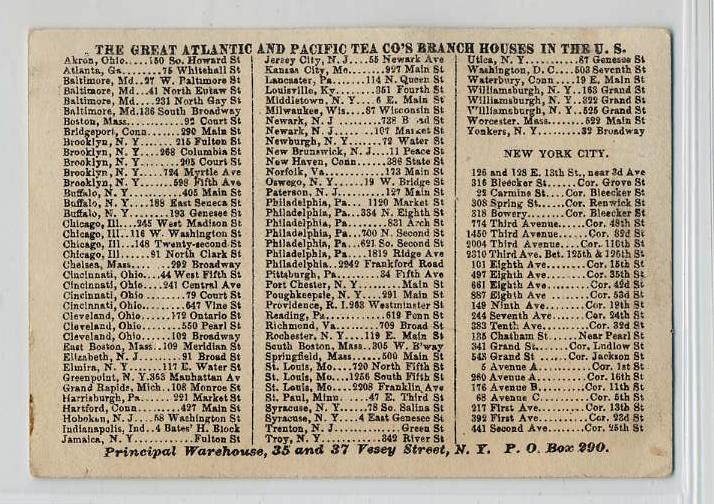 THE GREAT ATLANTIC AND PACIFIC TEA CO'S BRANCH HOUSES IN THE U. S.
Akron, Ohio.....150 So. Howard St
Atlanta, Ga........75 Whitehall St
Baltimore, Md...27 W. Baltimore St
Baltimore, Md...41 North Eutaw St
Baltimore, Md....231 North Gay St
Baltimore, Md.136 South Broadway
Boston, Mass..............92 Court St
Bridgeport, Conn.........290 Main St
Brooklyn, N. Y..........215 Fulton St
Brooklyn, N. Y......268 Columbia St
Brooklyn, N. Y...........203 Court St
Brooklyn, N. Y......724 Myrtle Ave
Brooklyn, N. Y........598 Fifth Ave
Buffalo, N. Y..............405 Main St
Buffalo, N. Y....188 East Seneca St
Buffalo, N. Y.........193 Genesee St
Chicago, Ill....245 West Madison St
Chicago, Ill....116 W. Washington St
Chicago, Ill....148 Twenty-second St
Chicago, Ill........91 North Clark St
Chelsea, Mass..........292 Broadway
Cincinnati, Ohio....44 West Fifth St
Cincinnati, Ohio....241 Central Ave
Cincinnati, Ohio.........79 Court St
Cincinnati, Ohio.........647 Vine St
Cleveland, Ohio......172 Ontario St
Cleveland, Ohio.........550 Pearl St
Cleveland, Ohio........102 Broadway
East Boston, Mass..109 Meridian St
Elizabeth, N. J............91 Broad St
Elmira, N. Y.........117 E. Water St
Greenpoint, N. Y.363 Manhattan Av
Grand Rapids, Mich..108 Monroe St
Harrisburg, Pa........221 Market St
Hartford, Conn..........427 Main St
Hoboken, N. J.....58 Washington St
Indianapolis, Ind..4 Bates' H. Block
Jamaica, N. Y..............Fulton St
Jersey City, N. J.....55 Newark Ave
Kansas City, Mo.........927 Main St
Lancaster, Pa.........114 N. Queen St
Louisville, Ky..........351 Fourth St
Middletown, N. Y......6 E. Main St
Milwaukee, Wis....87 Wisconsin St
Newark, N. J..........738 St
Newark, N. J..........107 Market St
Newburgh, N. Y.........72 Water St
New Brunswick, N. J...11 Peace St
New Haven, Conn........386 State St
Norfolk, Va................173 Main St
Oswego, N. Y........19 W. Bridge St
Paterson, N. J............127 Main St
Philadelphia, Pa....1120 Market St
Philadelphia, Pa...334 N. Eighth St
Philadelphia, Pa.........831 Arch St
Philadelphia, Pa..700 N. Second St
Philadelphia, Pa..621 So. Second St
Philadelphia, Pa......1819 Ridge Ave
Philadelphia..2942 Frankford Road
Pittsburgh, Pa...........34 Fifth Ave
Port Chester, N. Y...........Main St
Poughkeepsie, N. Y....291 Main St
Providence, R. I.263 Westminster St
Reading, Pa..............619 Penn St
Richmond, Va.........709 Broad St
Rochester, N. Y......119 E. Main St
South Boston, Mass..305 W. B'way
Springfield, Mass.......500 Main St
St. Louis, Mo....720 North Fifth St
St. Louis, Mo...1256 South Fifth St
St. Louis, Mo....2208 Franklin Ave
St. Paul, Minn.......47 E. Third St
Syracuse, N. Y......78 So. Salina St
Syracuse, N. Y....4 East Genesee St
Trenton, N. J................Green St
Troy, N. Y..............342 River St
Utica, N. Y..............87 Genesee St
Washington, D. C....503 Seventh St
Waterbury, Conn......19 E. Main St
Williamsburgh, N. Y...163 Grand St
Williamsburgh, N. Y...322 Grand St
Williamsburgh, N. Y...525 Grand St
Worcester, Mass..........522 Main St
Yonkers, N. Y...........32 Broadway
NEW YORK CITY.
126 and 128 E. 13th St., near 3d Ave
316 Bleecker St........Cor. Grove St
22 Carmine St.....Cor. Bleecker St
308 Spring St........Cor. Renwick St
318 Bowery..........Cor. Bleecker St
774 Third Avenue......Cor. 48th St
1450 Third Avenue......Cor. 82d St
2004 Third Avenue....Cor. 110th St
2310 Third Ave. Bet. 125th & 126th St
101 Eighth Ave.........Cor. 15th St
497 Eighth Ave.........Cor. 35th St
661 Eighth Ave.........Cor. 42d St
887 Eighth Ave.........Cor. 53d St
149 Ninth Ave..........Cor. 19th St
244 Seventh Ave.......Cor. 24th St
383 Tenth Av...........Cor. 32d St
135 Chatham St........Near Pearl St
341 Grand St.......Cor. Ludlow St
548 Grand St......Cor. Jackson St
5 Avenue A.............Cor. 1st St
260 Avenue A..........Cor. 16th St
176 Avenue B..........Cor. 11th St
68 Avenue C............Cor. 5th St
217 First Ave..........Cor. 13th St
392 First Ave...........Cor. 23d St
441 Second Ave........Cor. 25th St
Principal Warehouse, 35 and 37 Vesey Street, N. Y. P. O. Box 290.